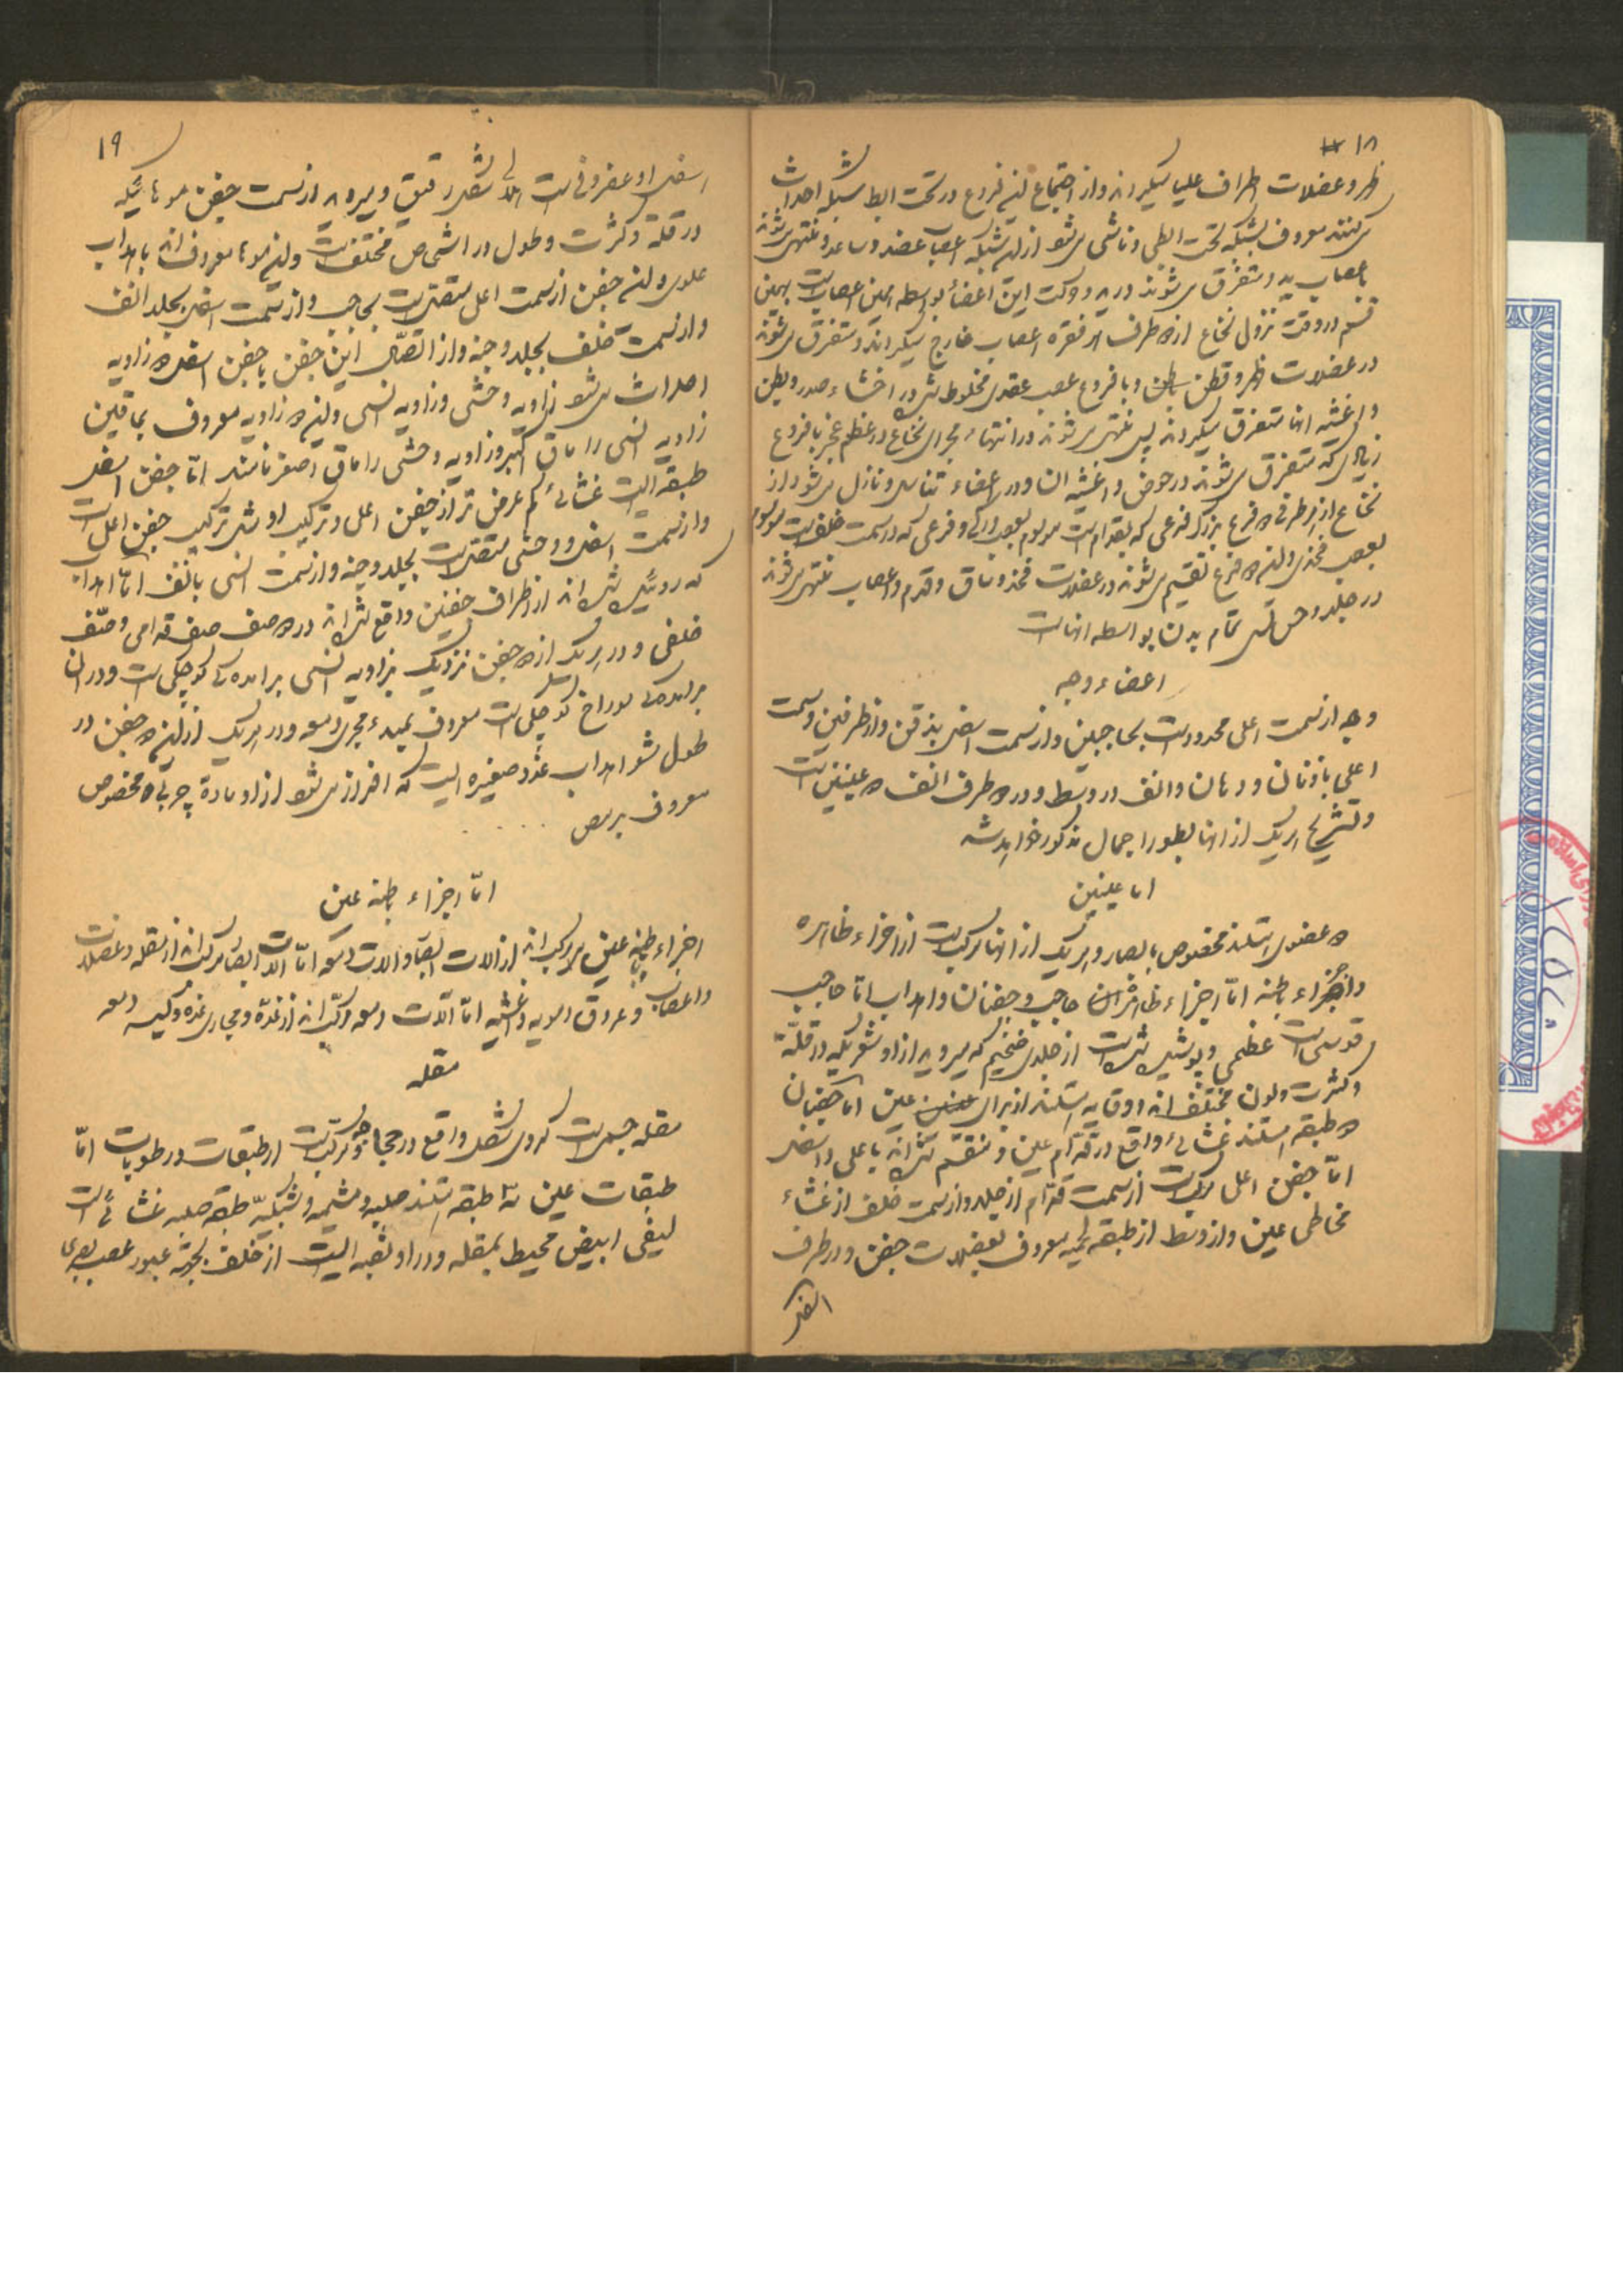 ۱۸
ظهر و عضلات اطراف علیا میگیرند و از اجتماع این فروع در تحت ابط شبکه احداث
میکنند معروف بشبکه تحت ابطی و ناشی میشود از این شبکه اعصاب عضد و ساعد و منتهی میشوند
باعصاب ید و متفرق میشوند در ید و حرکت این اعضاء بواسطه همین اعصابست بهمین
قسم در وقت نزول نخاع از دو طرف هر فقره اعصاب خارج میگردند و متفرق میشوند
در عضلات ظهر و قطن و بطن و با فروع عصب عقدی مخلوط شده در احشاء صدر و بطن
و اغشیه انها متفرق میگردند پس منتهی میشوند در انتهاء مجرای نخاع در عظم عجز با فروع
زیادی که متفرق میشوند در حوض و اغشیه ان و در اعضاء تناسل و نازل میشود از
نخاع از هر طرفی دو فرع بزرگ فرعی که بقدام است موسوم بعصب ورکی و فرعی که در سمت خلف است موسوم
بعصب فخذی و این دو فرع تقسیم میشوند در عضلات فخذ و ساق و قدم و اعصاب منتهی میشوند
در جلد و حس لمس تمام بدن بواسطه انهاست
اعضاء وجه
وجه از سمت اعلی محدود است بحاجبین و از سمت اسفل بذقن و از طرفین و سمت
اعلی باذنان و دهان و انف در وسط و در دو طرف انف دو عینین است
و تشریح هریک از انها بطور اجمال مذکور خواهد شد
اما عینین
دو عضوی هستند مخصوص بابصار و هریک از انها مرکب است از اجزاء ظاهره
و اجزاء باطنه امّا اجزاء ظاهره ان حاجب و جفنان و اهداب امّا حاجب
قوسی است عظمی و پوشیده شده است از جلدی ضخیم که میروید از او شعریکه در قلّة
و کثرت و لون مختلف اند و وقایه هستند از برای عین امّا جفنان
دو طبقه هستند غشائی واقع در قدّام عین و منقسم شده اند باعلی و اسفل
امّا جفن اعلی مرکب است از سمت قدّام از جلد و از سمت خلف از غشاء
مخاطی عین و از وسط از طبقه لحمیه معروف بعضلات جفن و در طرف
اسفل
۱۹
اسفل او غضروفی است هلالی شکل رقیق و میروید از سمت جفن موهائیکه
در قلّة و کثرت و طول در اشخاص مختلف است و این موها معروف اند باهداب
علوی و این جفن از سمت اعلی متصل است بحاجب و از سمت انسی بجلد انف
و از سمت خلف بجلد وجنه و از اتصال این جفن با جفن اسفل دو زاویه
احداث میشود زاویه وحشی و زاویه انسی و این دو زاویه معروف بماقین
زاویه انسی را ماق اکبر و زاویه وحشی را ماق اصغر نامند امّا جفن اسفل
طبقه ایست غشائی کم عرض تر از جفن اعلی و ترکیب او مثل ترکیب جفن اعلی است
و از سمت اسفل و وحشی متصل است بجلد وجنه و از سمت انسی بانف امّا اهداب
که روئیده شده اند از اطراف جفنین واقع شده اند در دو صف صف قدامی و صف
خلفی و در هریک از دو جفن نزدیک بزاویه انسی برامده گی کوچکی است و در ان
برامده گی سوراخ کوچکی است معروف بمبدء مجری دمعه و در هریک از این دو جفن در
طول شعر اهداب غدد صغیره ایست که افراز میشود از او مادة چربی مخصوص
معروف برمص
امّا اجزاء باطنه عین
اجزاء باطنه عین مرکب اند از الات ابصار و الات دمعه امّا الات ابصار مرکب اند از مقله و عضلات
و اعصاب و عروق دمویه و اغشیه امّا آلات دمعه مرکّب اند از غدّه و مجاری غده و کیسه دمعه
مقله
مقله جسمی است کروی شکل واقع در حجاج و مرکّب است از طبقات و رطوبات امّا
طبقات عین سه طبقه هستند صلبیه و مشیمیه و شبکیّه طبقه صلبیه غشائی است
لیفی ابیض محیط بمقله و در او ثقبه ایست از خلف بجهة عبور عصب بصری